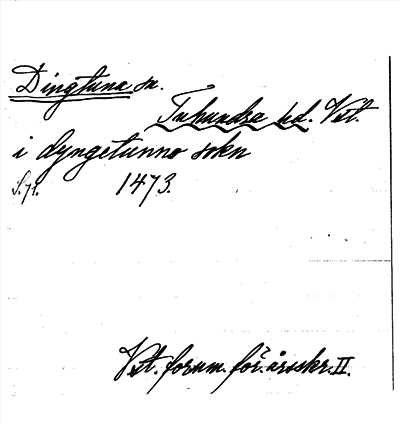 Dingtuna sn.
Tuhundra hd. Vstm.
i dyngetunno sokn
S. 71. 1473.
Vstm. fornm. för. årsskr. II.